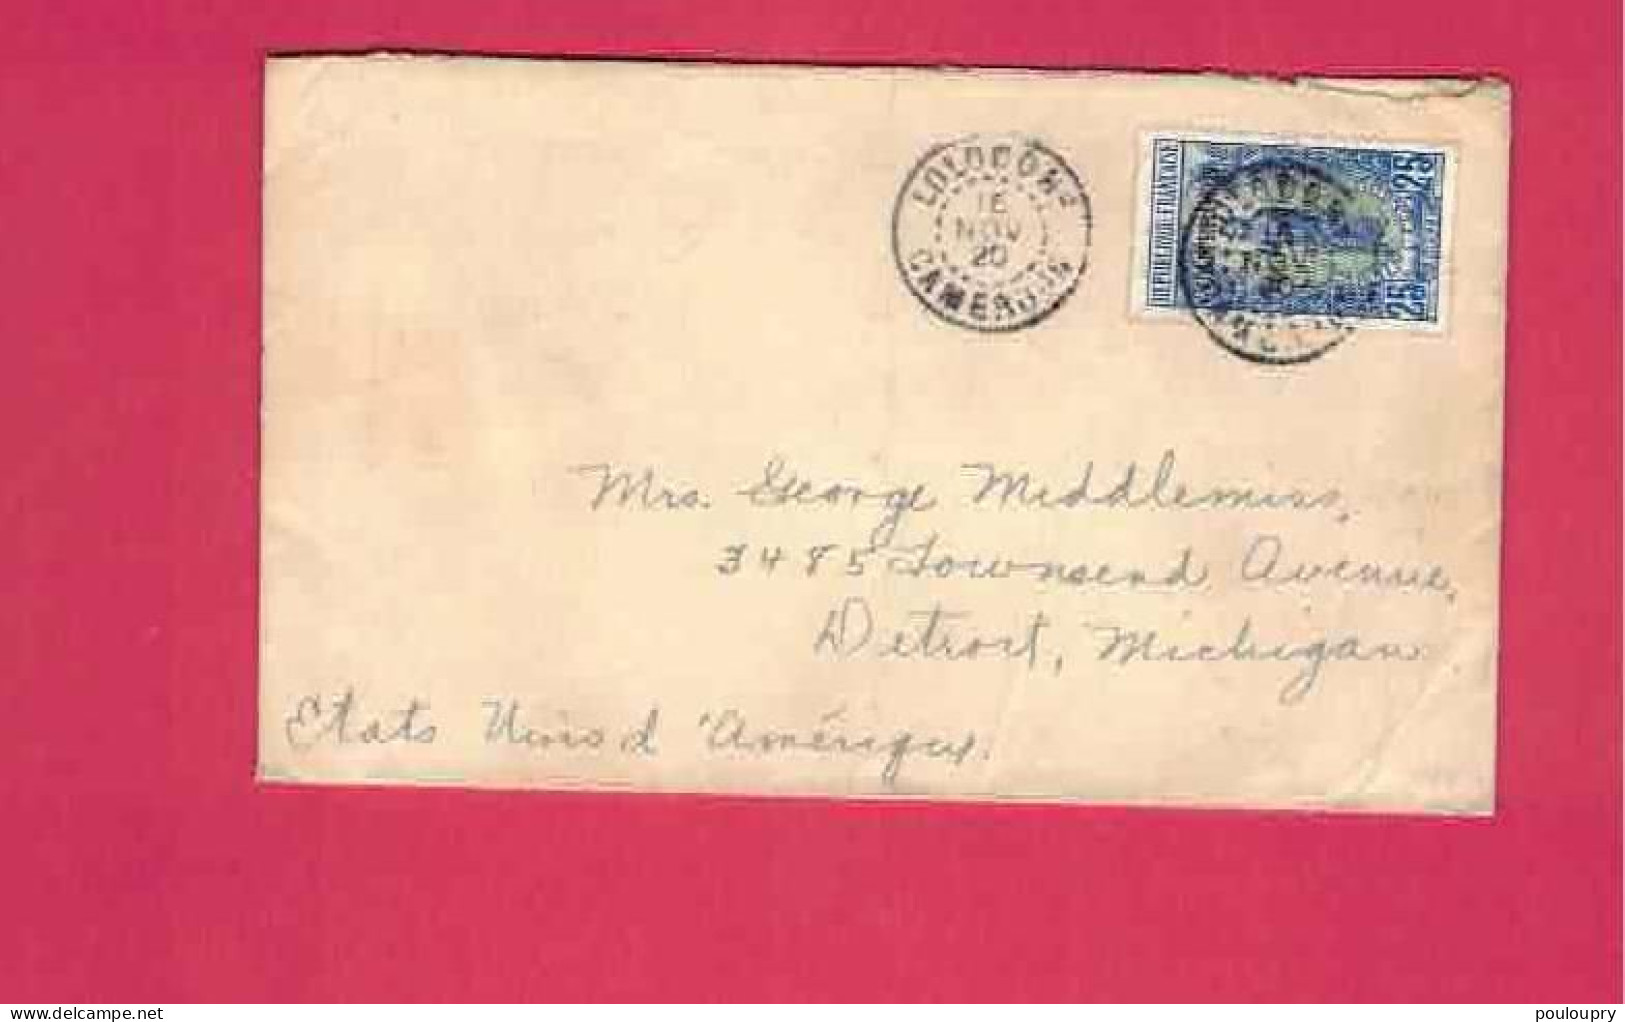 LOLODORF
16
NOV
20
CAMEROUN
REPUBLIQUE FRANÇAISE
25
25
NOV
Mrs. George Middlemiss,
3485 Townsend Avenue,
Detroit, Michigan
Etats Unis d'Amérique.
delcampe.net
pouloupry